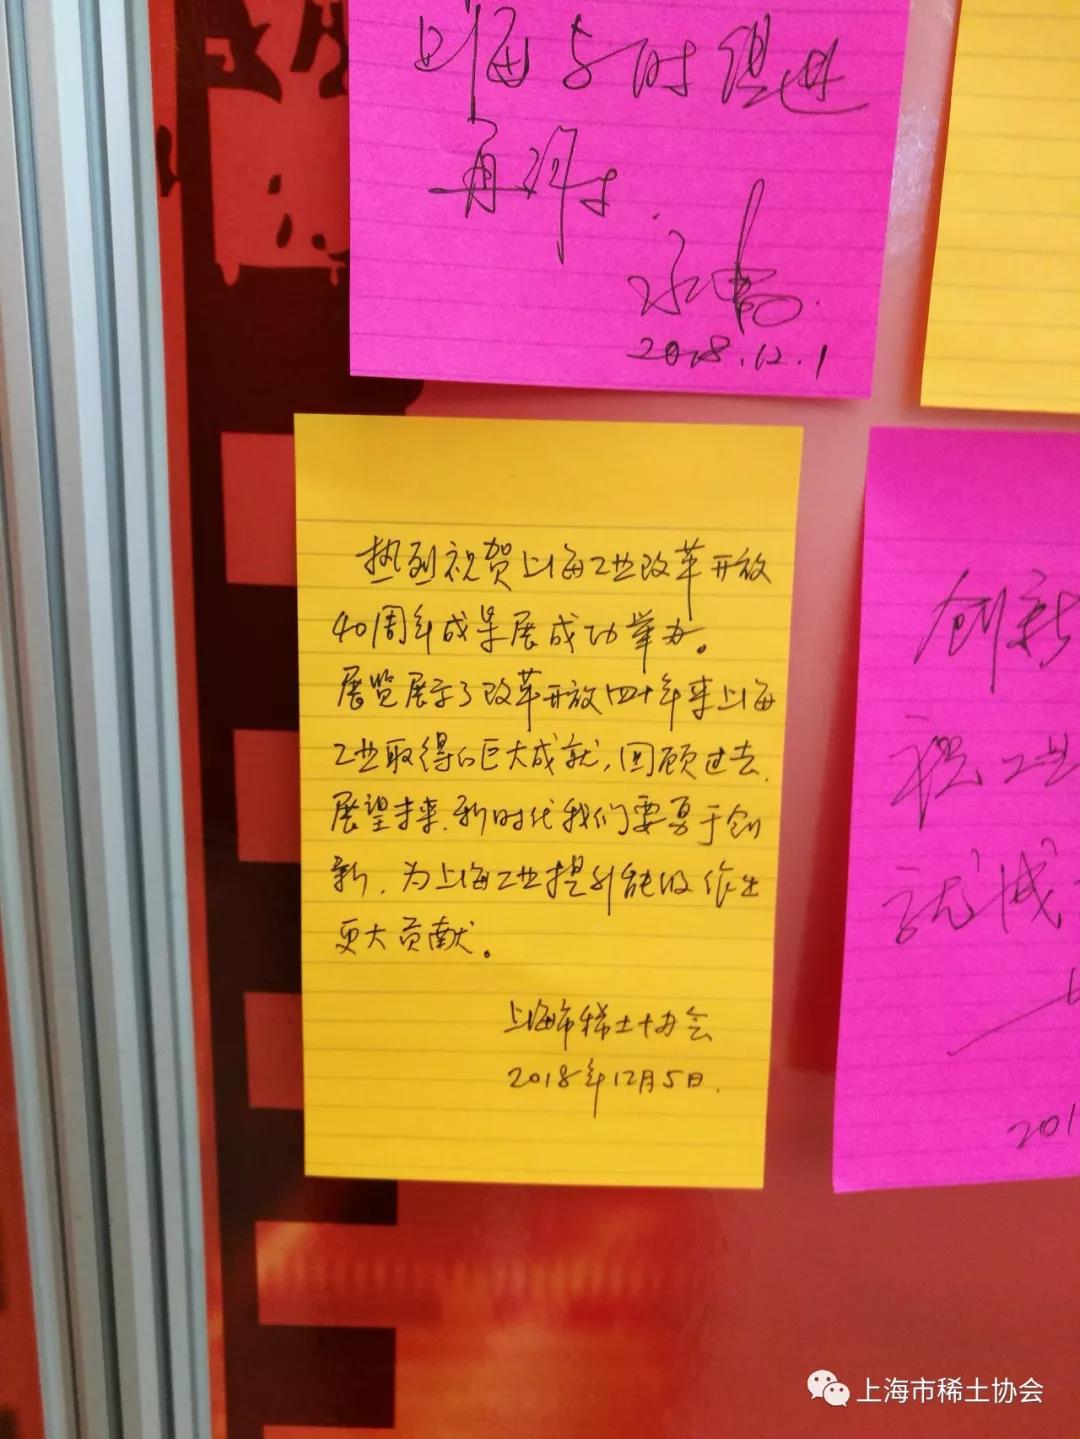 上海与时俱进
再
2018.12.1
热烈祝贺上海工业改革开放
40周年成果展成功举办。
展览展示了改革开放四十年来上海
工业取得的巨大成就,回顾过去,
展望未来,新时代我们要勇于创
新,为上海工业提升能级作出
更大贡献。
上海市稀土协会
2018年12月5日.
创新
祝工业
就成
201
上海市稀土协会